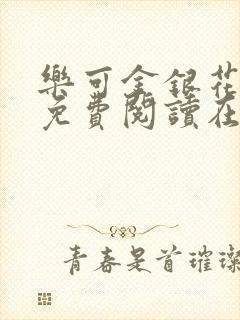 樂可金銀花
免費閱讀在
青春是首璀璨